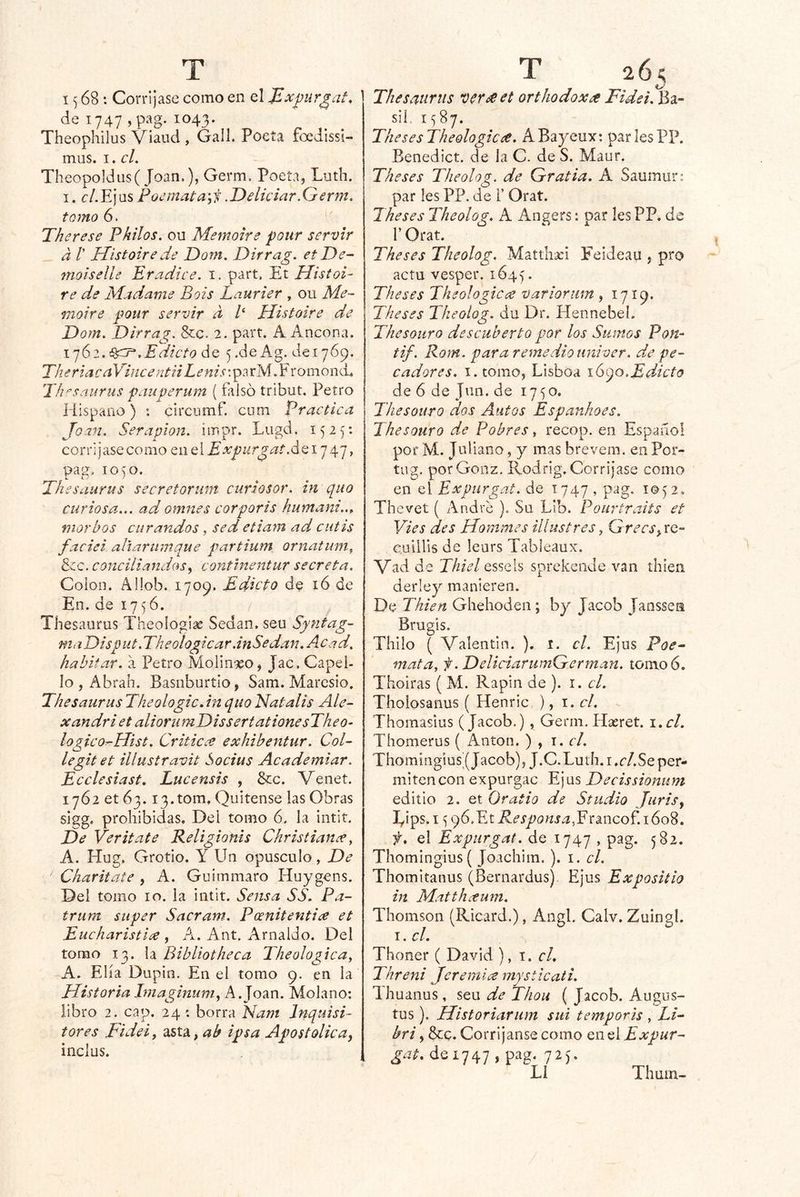 T
1568: Corrijase como en el Expurgat.
de 1747, pag. 1043.
Theophilus Viaud, Gall. Poeta fœdissi-
mus. 1. cl.
Theopoldus (Joan.), Germ. Poeta, Luth.
1. cl. Ejus Poemata; ꝟ. Deliciar. Germ.
tomo 6.
Therese Philos. ou Memoire pour servir
à l' Histoire de Dom. Dirrag. et De-
moiselle Eradice. 1. part. Et Histoi-
re de Madame Bois Laurier, ou Me-
moire pour servir à l' Histoire de
Dom. Dirrag. &c. 2. part. A Ancona.
1762. ☞. Edicto de 5. de Ag. de 1769.
Theriaca Vincentii Lenis: par M. Fromond.
Thesaurus pauperum (falsò tribut. Petro
Hispano): circumf. cum Practica
Joan. Serapion. impr. Lugd. 1525:
corrijase como en el Expurgat. de 1747,
pag. 1050.
Thesaurus secretorum curiosor. in quo
curiosa... ad omnes corporis humani...
morbos curandos, sed etiam ad cutis
faciei aliarumque partium ornatum,
&c. conciliandos, continentur secreta.
Colon. Allob. 1709. Edicto de 16 de
En. de 1756.
Thesaurus Theologiæ Sedan. seu Syntag-
ma Disput. Theologicar. in Sedan. Acad.
habitar. à Petro Molinæo, Jac. Capel-
lo, Abrah. Basnburtio, Sam. Maresio.
Thesaurus Theologic. in quo Natalis Ale-
xandri et aliorum Dissertationes Theo-
logico-Hist. Criticæ exhibentur. Col-
legit et illustravit Socius Academiar.
Ecclesiast. Lucensis, &c. Venet.
1762 et 63. 13. tom. Quitense las Obras
sigg. prohibidas. Del tomo 6. la intit.
De Veritate Religionis Christianæ,
A. Hug. Grotio. Y Un opusculo, De
Charitate, A. Guimmaro Huygens.
Del tomo 10. la intit. Sensa SS. Pa-
trum super Sacram. Pœnitentiæ et
Eucharistiæ, A. Ant. Arnaldo. Del
tomo 13. la Bibliotheca Theologica,
A. Elía Dupin. En el tomo 9. en la
Historia Imaginum, A. Joan. Molano:
libro 2. cap. 24: borra Nam Inquisi-
tores Fidei, asta, ab ipsa Apostolica,
inclus.
T 265
Thesaurus veræ et orthodoxæ Fidei. Ba-
sil. 1587.
Theses Theologicæ. A Bayeux: par les PP.
Benedict. de la C. de S. Maur.
Theses Theolog. de Gratia. A Saumur:
par les PP. de l' Orat.
Theses Theolog. A Angers: par les PP. de
l' Orat.
Theses Theolog. Matthæi Feideau, pro
actu vesper. 1645.
Theses Theologicæ variorum, 1719.
Theses Theolog. du Dr. Hennebel.
Thesouro descuberto por los Sumos Pon-
tif. Rom. para remedio univer. de pe-
cadores. 1. tomo, Lisboa 1690. Edicto
de 6 de Jun. de 1750.
Thesouro dos Autos Espanhoes.
Thesouro de Pobres, recop. en Español
por M. Juliano, y mas brevem. en Por-
tug. por Gonz. Rodrig. Corrijase como
en el Expurgat. de 1747, pag. 1052.
Thevet (Andrè). Su Lib. Pourtraits et
Vies des Hommes illustres, Grecs, re-
cuillis de leurs Tableaux.
Vad de Thiel essels sprekende van thien
derley manieren.
De Thien Ghehoden; by Jacob Janssen
Brugis.
Thilo (Valentin.). 1. cl. Ejus Poe-
mata, ꝟ. Deliciarum German. tomo 6.
Thoiras (M. Rapin de). 1. cl.
Tholosanus (Henric.), 1. cl.
Thomasius (Jacob.), Germ. Hæret. 1. cl.
Thomerus (Anton.), 1. cl.
Thomingius (Jacob), J.C. Luth. 1. cl. Se per-
miten con expurgac. Ejus Decissionum
editio 2. et Oratio de Studio Juris,
Lips. 1596. Et Responsa, Francof. 1608.
ꝟ. el Expurgat. de 1747, pag. 582.
Thomingius (Joachim.). 1. cl.
Thomitanus (Bernardus) Ejus Expositio
in Matthæum.
Thomson (Ricard.), Angl. Calv. Zuingl.
1. cl.
Thoner (David), 1. cl.
Threni Jeremiæ mysticati.
Thuanus, seu de Thou (Jacob. Augus-
tus). Historiarum sui temporis, Li-
bri, &c. Corrijanse como en el Expur-
gat. de 1747, pag. 725.
Ll Thum-